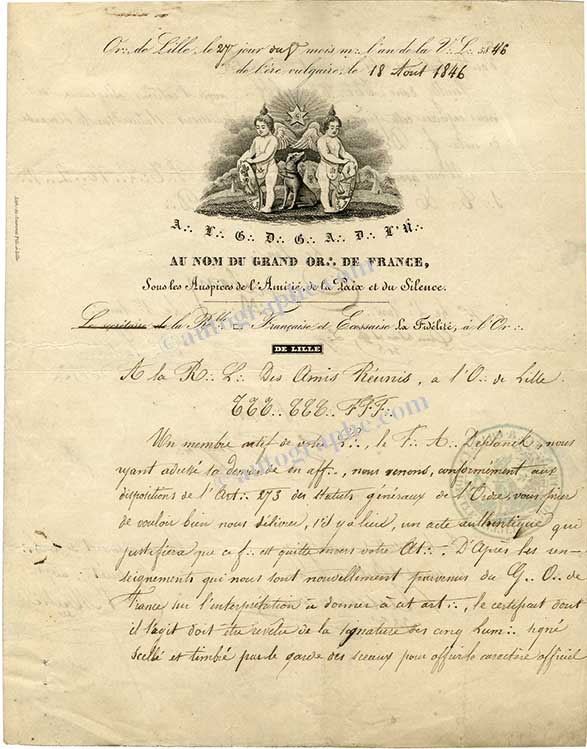 Or∴ de Lille, le 27e jour du 6e mois m∴ l'an de la V∴ L∴ 5846
de l'ère vulgaire, le 18 Aout 1846
A∴ L∴ G∴ D∴ G∴ A∴ D∴ L'U∴
AU NOM DU GRAND OR∴ DE FRANCE,
Sous les Auspices de l'Amitié, de la Paix et du Silence.
Le secrétaire de la R∴ Française et Ecossaise La Fidélité, à l'Or∴
DE LILLE
A la R∴ L∴ Des Amis Réunis, a l'O∴ de Lille
TTT∴ TTT∴ FFF∴
Un membre actif de votre L∴, le F∴ A∴ Deplanck, nous
ayant adressé sa demande en aff∴, nous venons, conformément aux
dispositions de l'Art∴ 273 des Statuts généraux de l'Ordre, vous prier
de vouloir bien nous délivrer, s'il y a lieu, un acte authentique qui
justifiera que ce f∴ est quitte envers votre At∴. D'Après les ren-
seignements qui nous sont nouvellement parvenus du G∴ O∴ de
France sur l'interprétation à donner à cet art∴, le certificat dont
il s'agit doit être revêtu de la signature des cinq Lum∴ signé
scellé et timbré par le garde des sceaux pour offrir le caractère officiel
© autographe.com
© autographe.com
© autographe.com